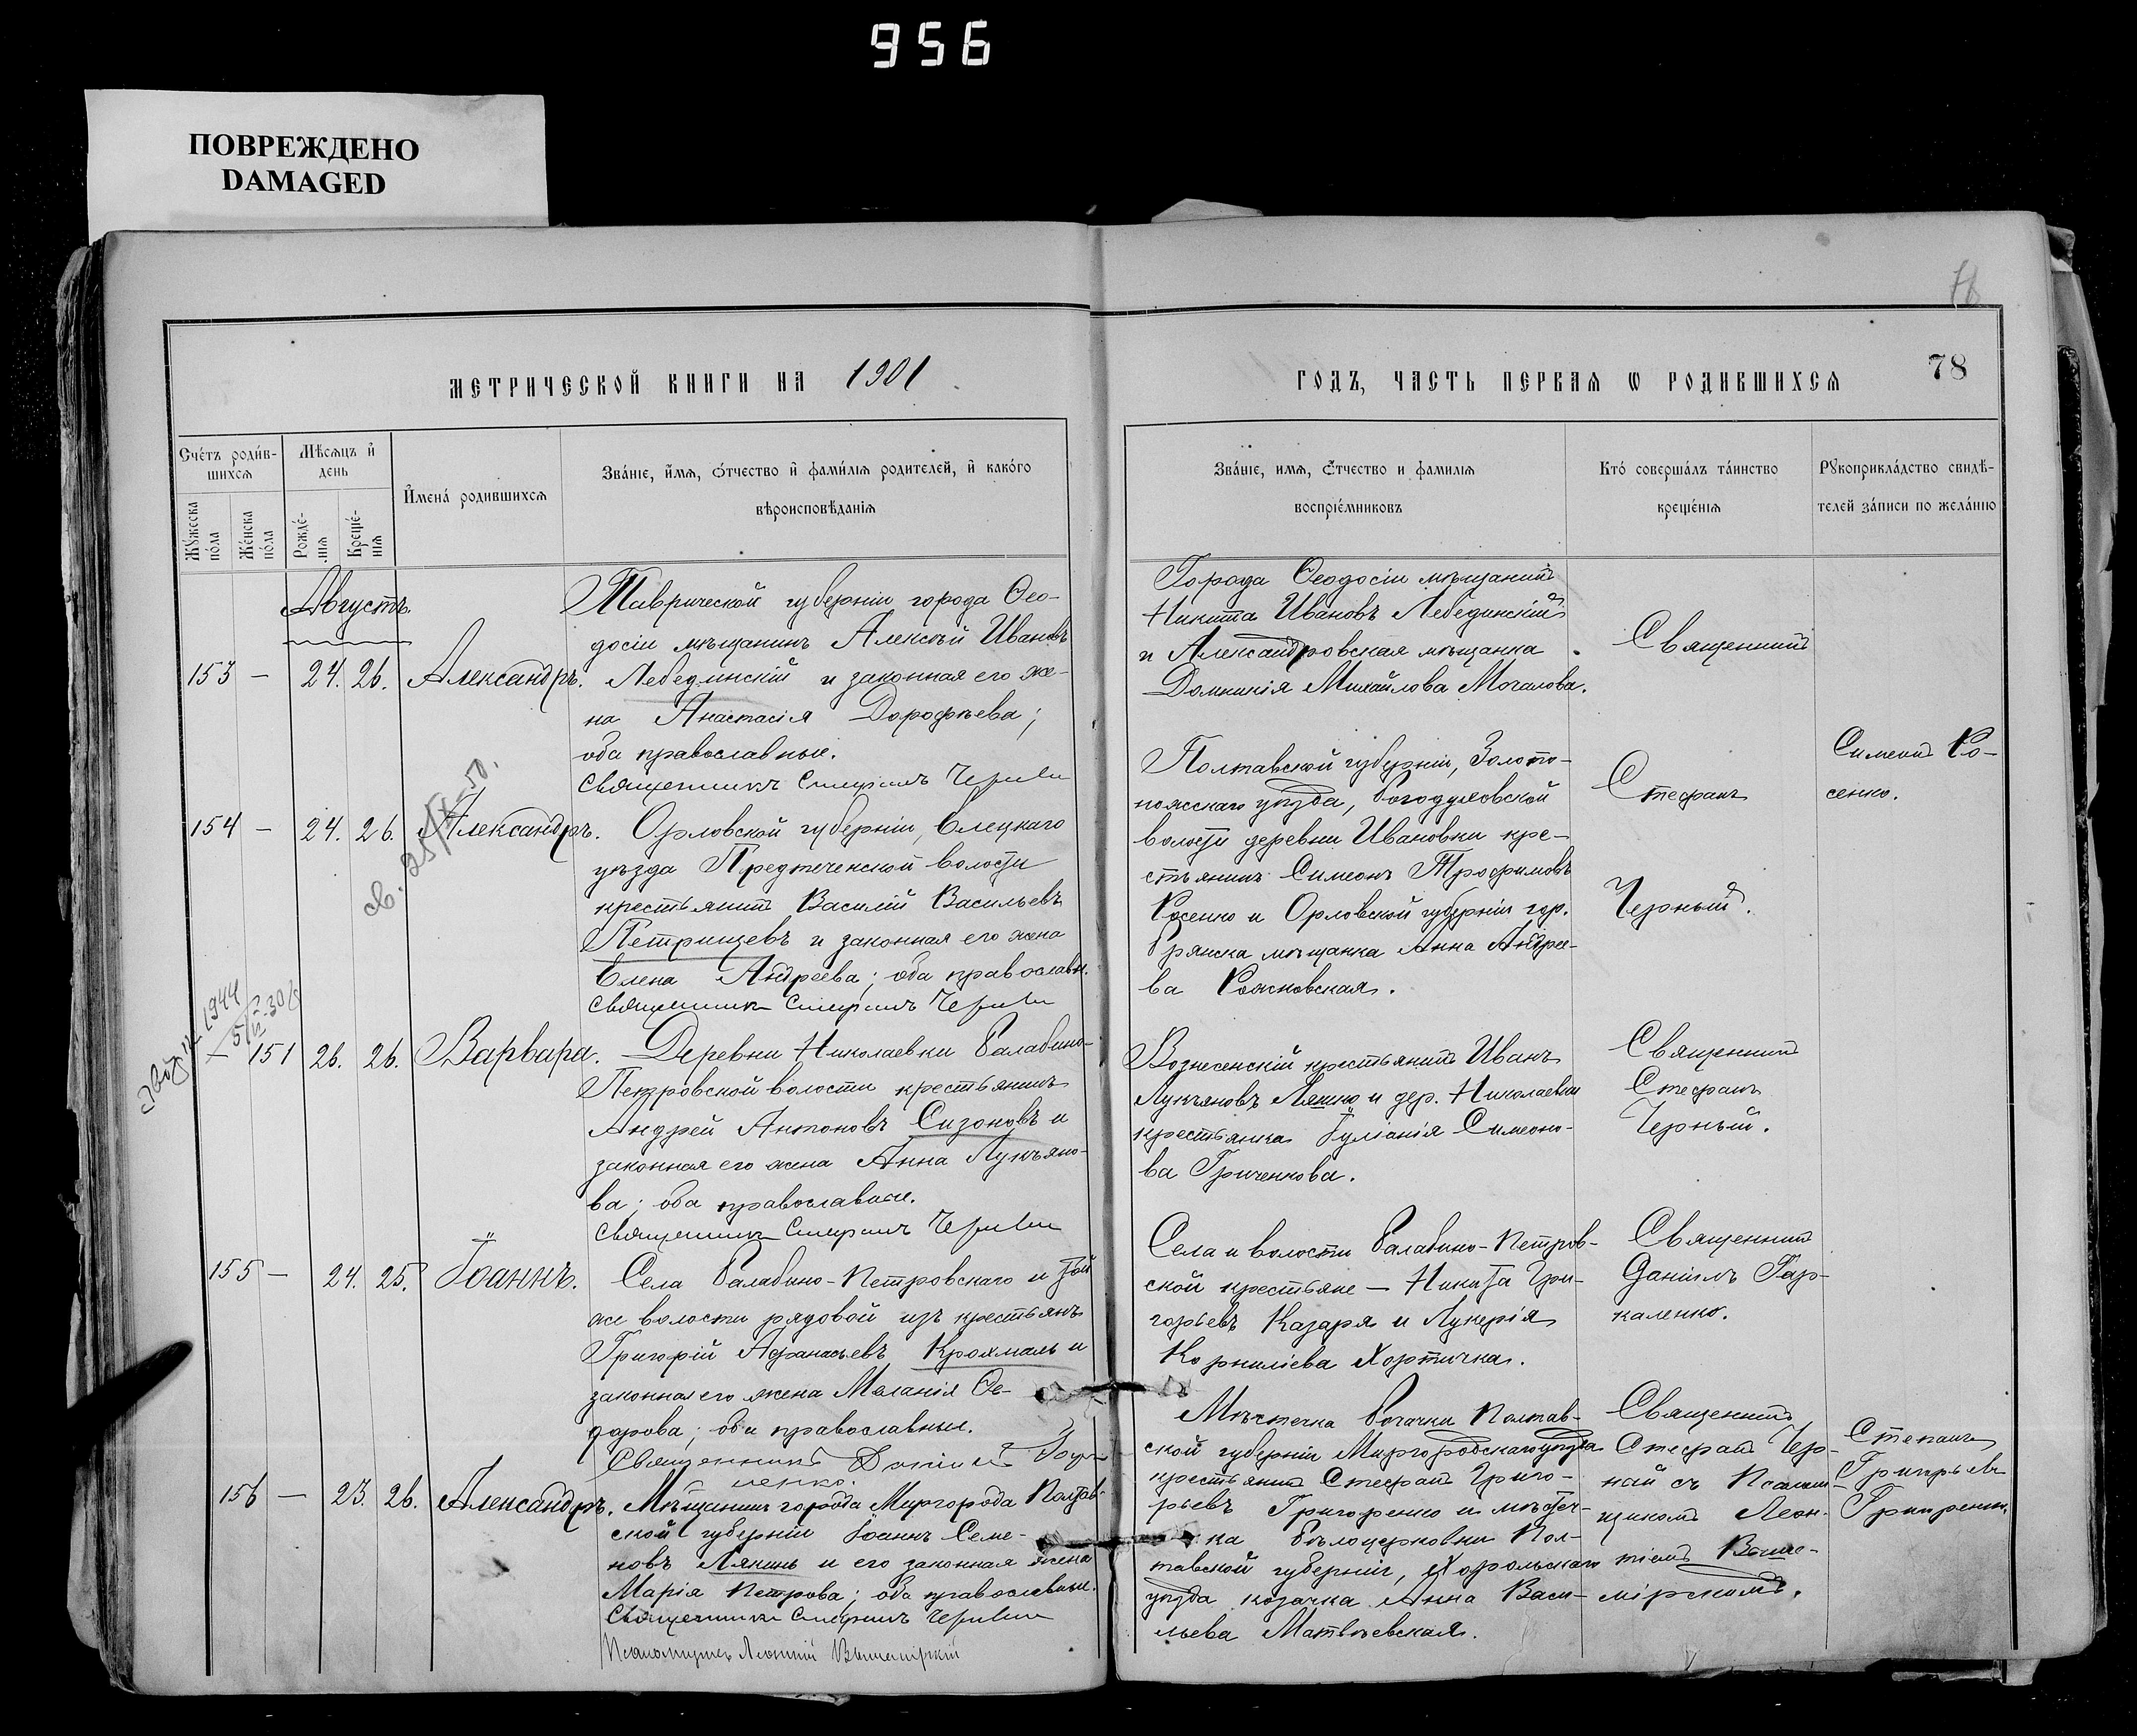 956
ПОВРЕЖДЕНО
DAMAGED
78
МЕТРИЧЕСКОЙ КНИГИ НА 1901
ГОДЪ, ЧАСТЬ ПЕРВАЯ Ѡ РОДИВШИХСЯ
78
Счетъ родив-
шихся
Мужеска
пола
Женска
пола
Мѣсяцъ и
день
Рожде-
нія
Креще-
нія
Имена родившихся
Званіе, имя, отчество и фамилія родителей, и какого
вѣроисповѣданія
Званіе, имя, отчество и фамилія
воспріемниковъ
Кто совершалъ таинство
крещенія
Рукоприкладство свидѣ-
телей записи по желанію
Августъ
153 — 24. 26. Александръ.
Таврической губерніи города Ѳео-
досіи мѣщанинъ Алексѣй Ивановъ
Лебединскій и законная его же-
на Анастасія Дорофѣева;
оба православные.
Священникъ Стефанъ Черный
Города Ѳеодосіи мѣщанинъ
Никита Ивановъ Лебединскій
и Александровская мѣщанка
Домникія Михайлова Мочалова.
Священникъ
Стефанъ
Черный.
154 — 24. 26. Александръ.
св. 25/IX-50.
Орловской губерніи, Елецкаго
уѣзда Предтеченской волости
крестьянинъ Василій Васильевъ
Петрищевъ и законная его жена
Елена Андреева; оба православн.
Священникъ Стефанъ Черный
Полтавской губерніи, Золото-
ношскаго уѣзда, Богодуховской
волости деревни Ивановки кре-
стьянинъ Симеонъ Трофимовъ
Косенко и Орловской губерніи гор.
Брянска мѣщанка Анна Андрее-
ва
Симеонъ Ко-
сенко.
1944
— 151 26. 26. Варвара.
Деревни Николаевки Балабино-
Петровской волости крестьянинъ
Андрей Антоновъ Сизоновъ и
законная его жена Анна Лукьяно-
ва; оба православные.
Священникъ Стефанъ Черный
Вознесенскій крестьянинъ Иванъ
Лукьяновъ Ляшко и дер. Николаевки
крестьянка Іуліанія Симеоно-
ва Гриченкова.
Священникъ
Стефанъ
Черный.
155 — 24. 25. Іоаннъ.
Села Балабино-Петровскаго и той
же волости рядовой изъ крестьянъ
Григорій Афанасьевъ Крохмаль и
законная его жена Меланія Ѳе-
дорова; оба православные.
Священникъ Даніилъ
ленко.
Села и волости Балабино-Петров-
ской крестьяне — Никита Гри-
горьевъ Казаря и Лукерія
Корниліева Хортичка.
Священникъ
Даніилъ Гар-
каленко.
156 — 23. 26. Александръ.
Мѣщанинъ города Миргорода Полтав-
ской губерніи Іоаннъ Семе-
новъ и его законная жена
Марія Петрова; оба православные.
Священникъ Стефанъ Черный
Псаломщикъ Леонтій Вышемірскій
Мѣстечка Богачки Полтав-
ской губерніи Миргородскаго уѣзда
крестьянинъ Стефанъ Григо-
рьевъ Григоренко и мѣстеч-
ка Бѣлоцерковки Пол-
тавской губерніи, Хорольскаго
уѣзда козачка Анна Васи-
льева Матвѣевская.
Священникъ
Стефанъ Чер-
ный съ Псалом-
щикомъ Леон-
тіемъ Выше-
мірскимъ.
Степанъ
Григорьевъ
Григоренко.